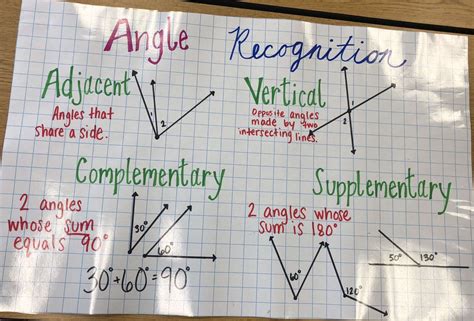 Angle Recognition
Adjacent
Angles that
share a side.
1
2
Vertical
Opposite angles
made by two
intersecting lines.
1
2
Complementary
2 angles
whose sum
equals 90°
30°
60°
30°+60°=90°
Supplementary
2 angles whose
sum is 180°
60°
120°
50°
130°